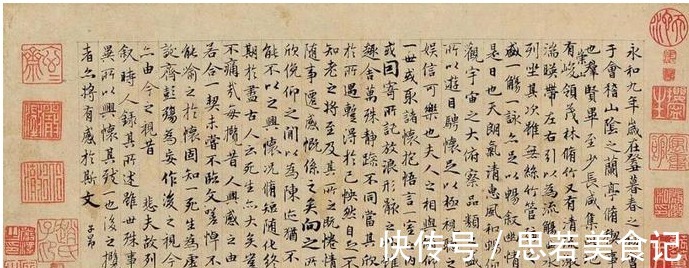 永和九年歲在癸丑暮春之
于會稽山陰之蘭亭脩禊
也羣賢畢至少長咸集
崇山
有峻領茂林脩竹又有清
湍暎帶左右引以為流觴
列坐其次雖無絲竹管
盛一觴一詠亦足以暢敘幽情
是日也天朗氣清惠風和
觀宇宙之大俯察品類
所以遊目騁懷足以極視
娛信可樂也夫人之相與
一世或取諸懷抱悟言一室
或因寄所託放浪形骸之
趣舍萬殊靜躁不同當其欣
於所遇蹔得於己怏然自足不
知老之將至及其所之既惓情
隨事遷感慨係之矣向之所
欣俛仰之間以為陳迹猶不
能不以之興懷況脩短隨化終
期於盡古人云死生亦大矣豈
不痛哉每攬昔人興感之由
若合一契未嘗不臨文嗟悼不
能喻之於懷固知一死生為虛
誕齊彭殤為妄作後之視今
亦由今之視昔 悲夫故列
敘時人錄其所述雖世殊事
異所以興懷其致一也後之攬
者亦將有感於斯文
子昂
快传号 / 思若美食记